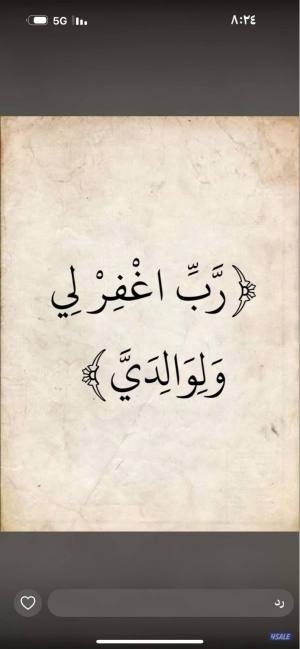 5G
٨:٢٤
﴿رَّبِّ اغْفِرْ لِي
وَلِوَالِدَيَّ﴾
رد
4SALE